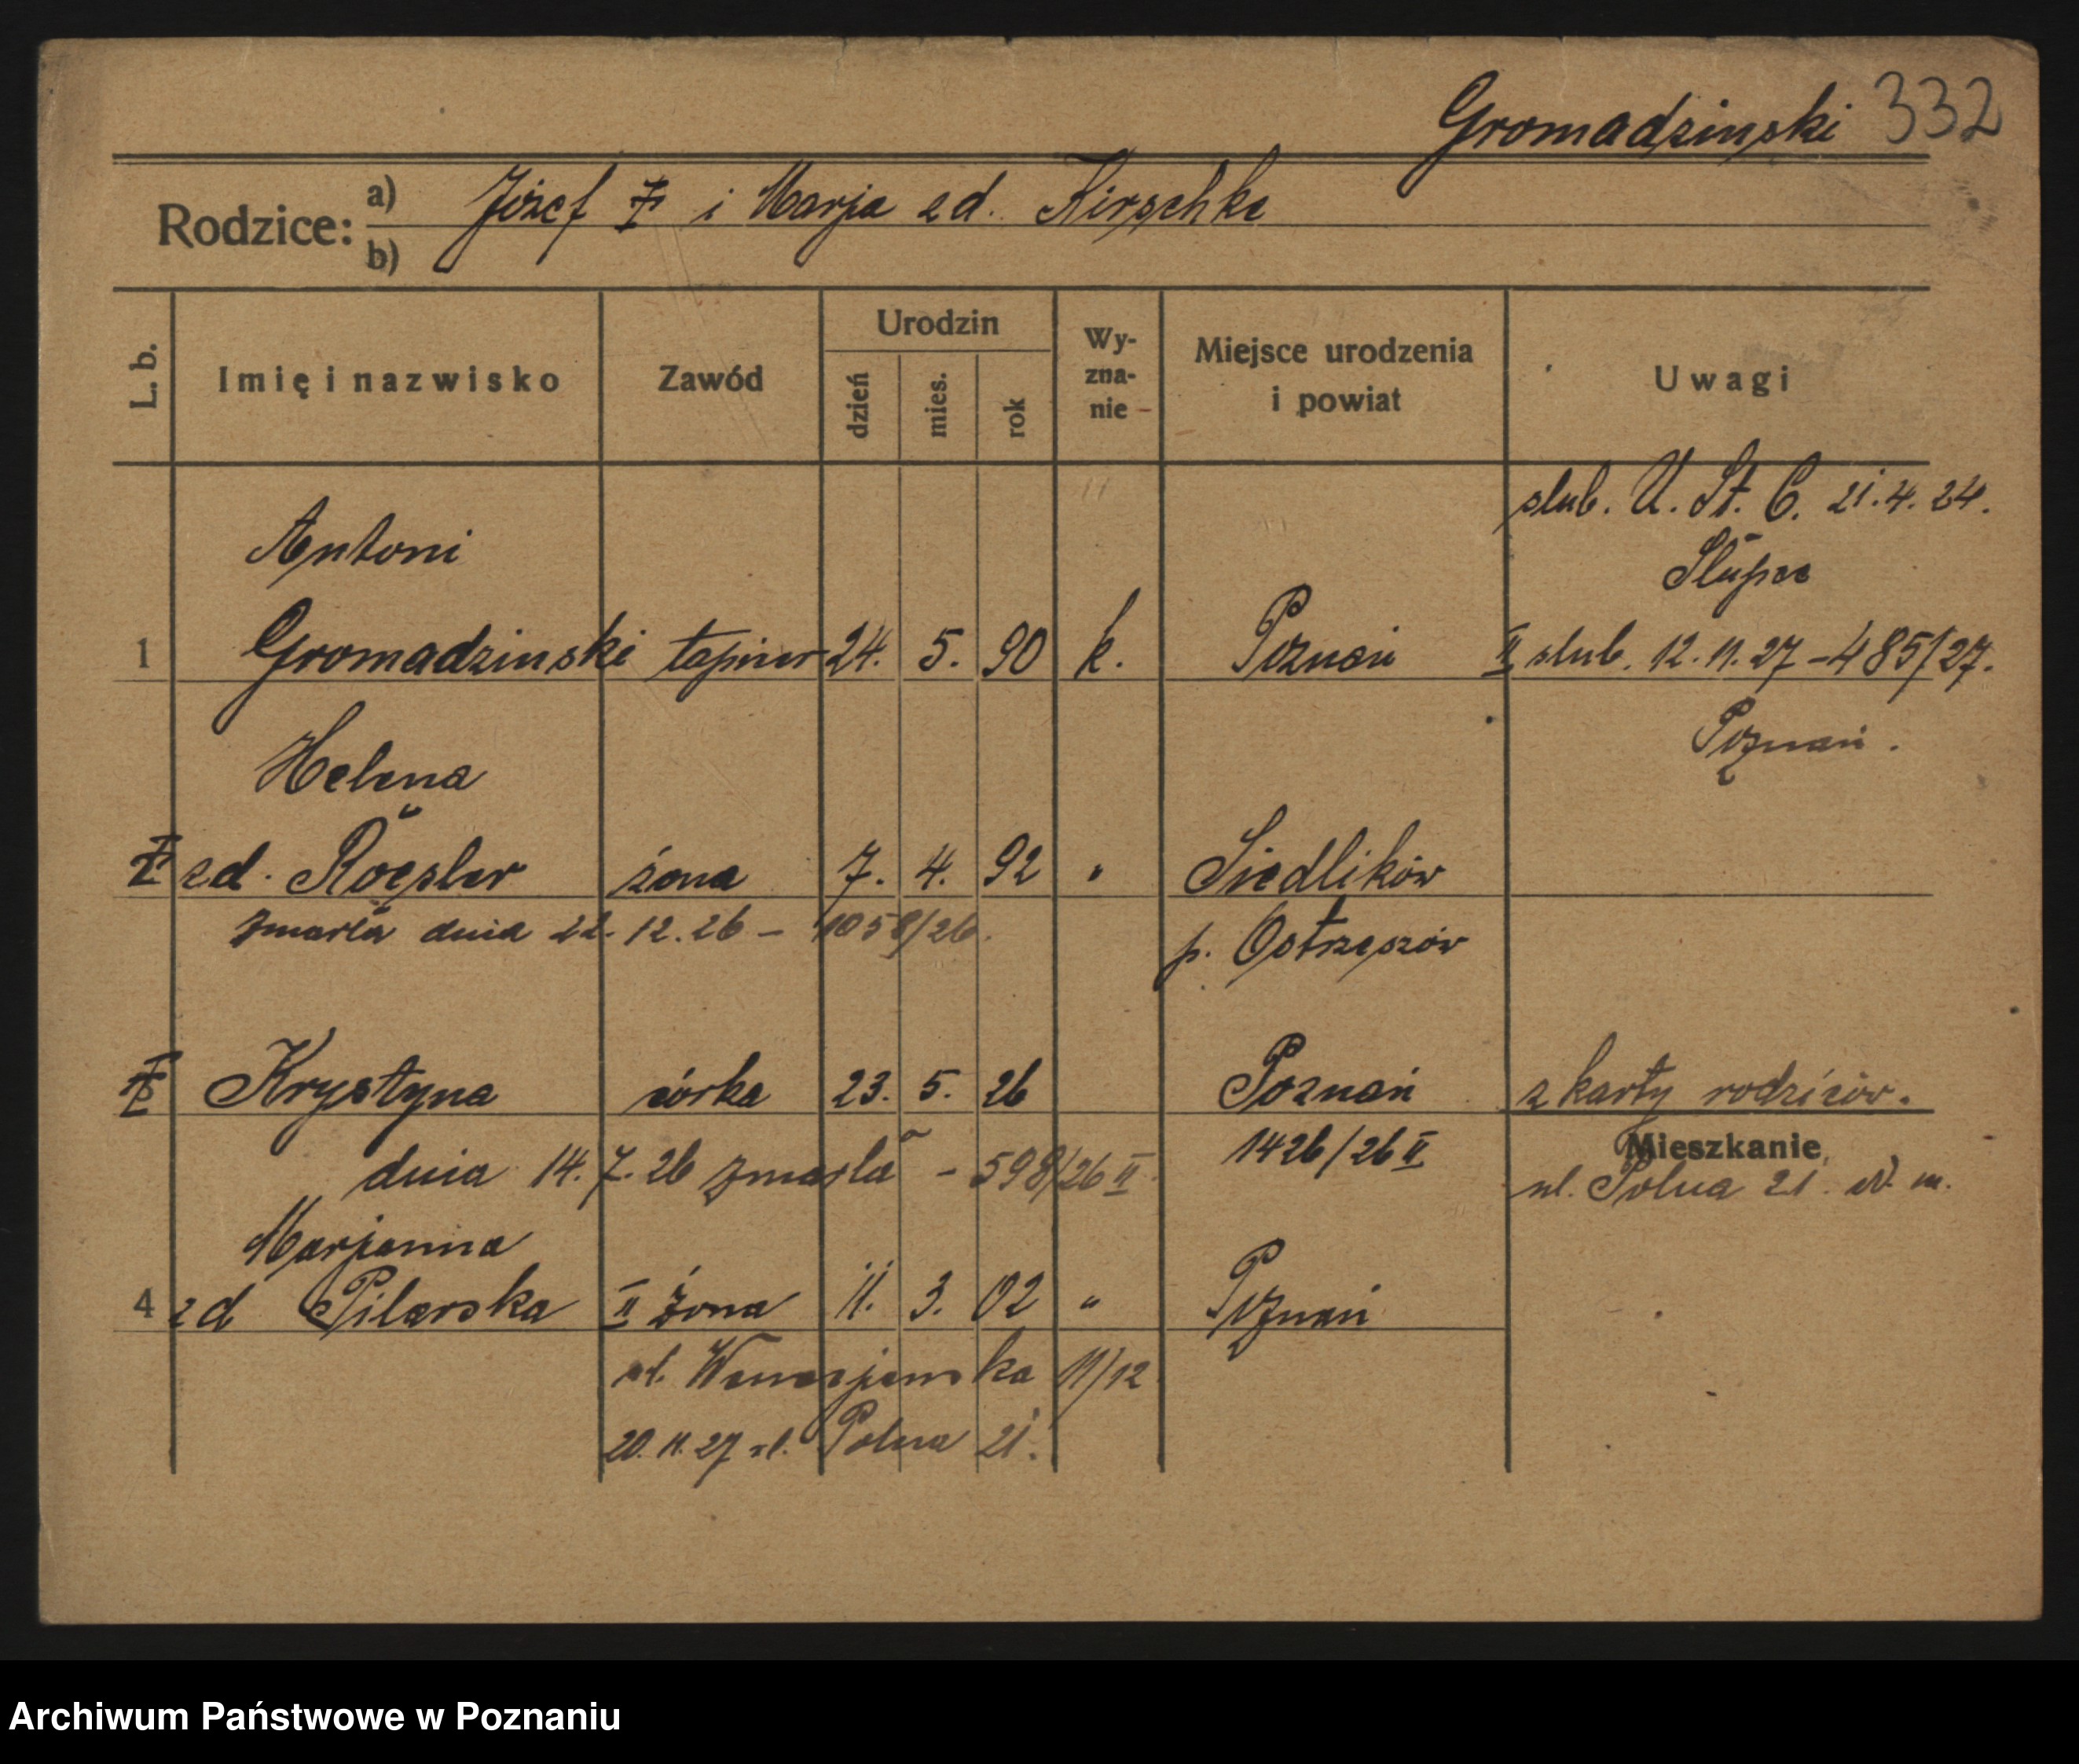 Gromadzinski 332
Rodzice: a) Józef ‡ i Marja zd. Kirschke
b)
L. b. Imię i nazwisko Zawód Urodzin dzień mies. rok Wy-zna-nie Miejsce urodzenia i powiat Uwagi
slub. U. St. C. 21.4.24.
Antoni Słupca
1 Gromadzinski tapicer 24. 5. 90 k. Poznań II slub. 12.11.27 – 485/27.
Helena Poznań.
zd. Röesler żona 7. 4. 92 " Siedlików
zmarła dnia 22.12.26 – 1058/26. p. Ostrzeszów
Krystyna córka 23. 5. 26 Poznań z karty rodziców.
dnia 14.7.26 zmarła – 598/26 II 1426/26 II Mieszkanie
ul. Polna 21.
Marjanna
4 zd Pilarska II żona 11. 3. 02 " Poznań
ul. 11/12
20.11.27 ul. Polna 21.
Archiwum Państwowe w Poznaniu